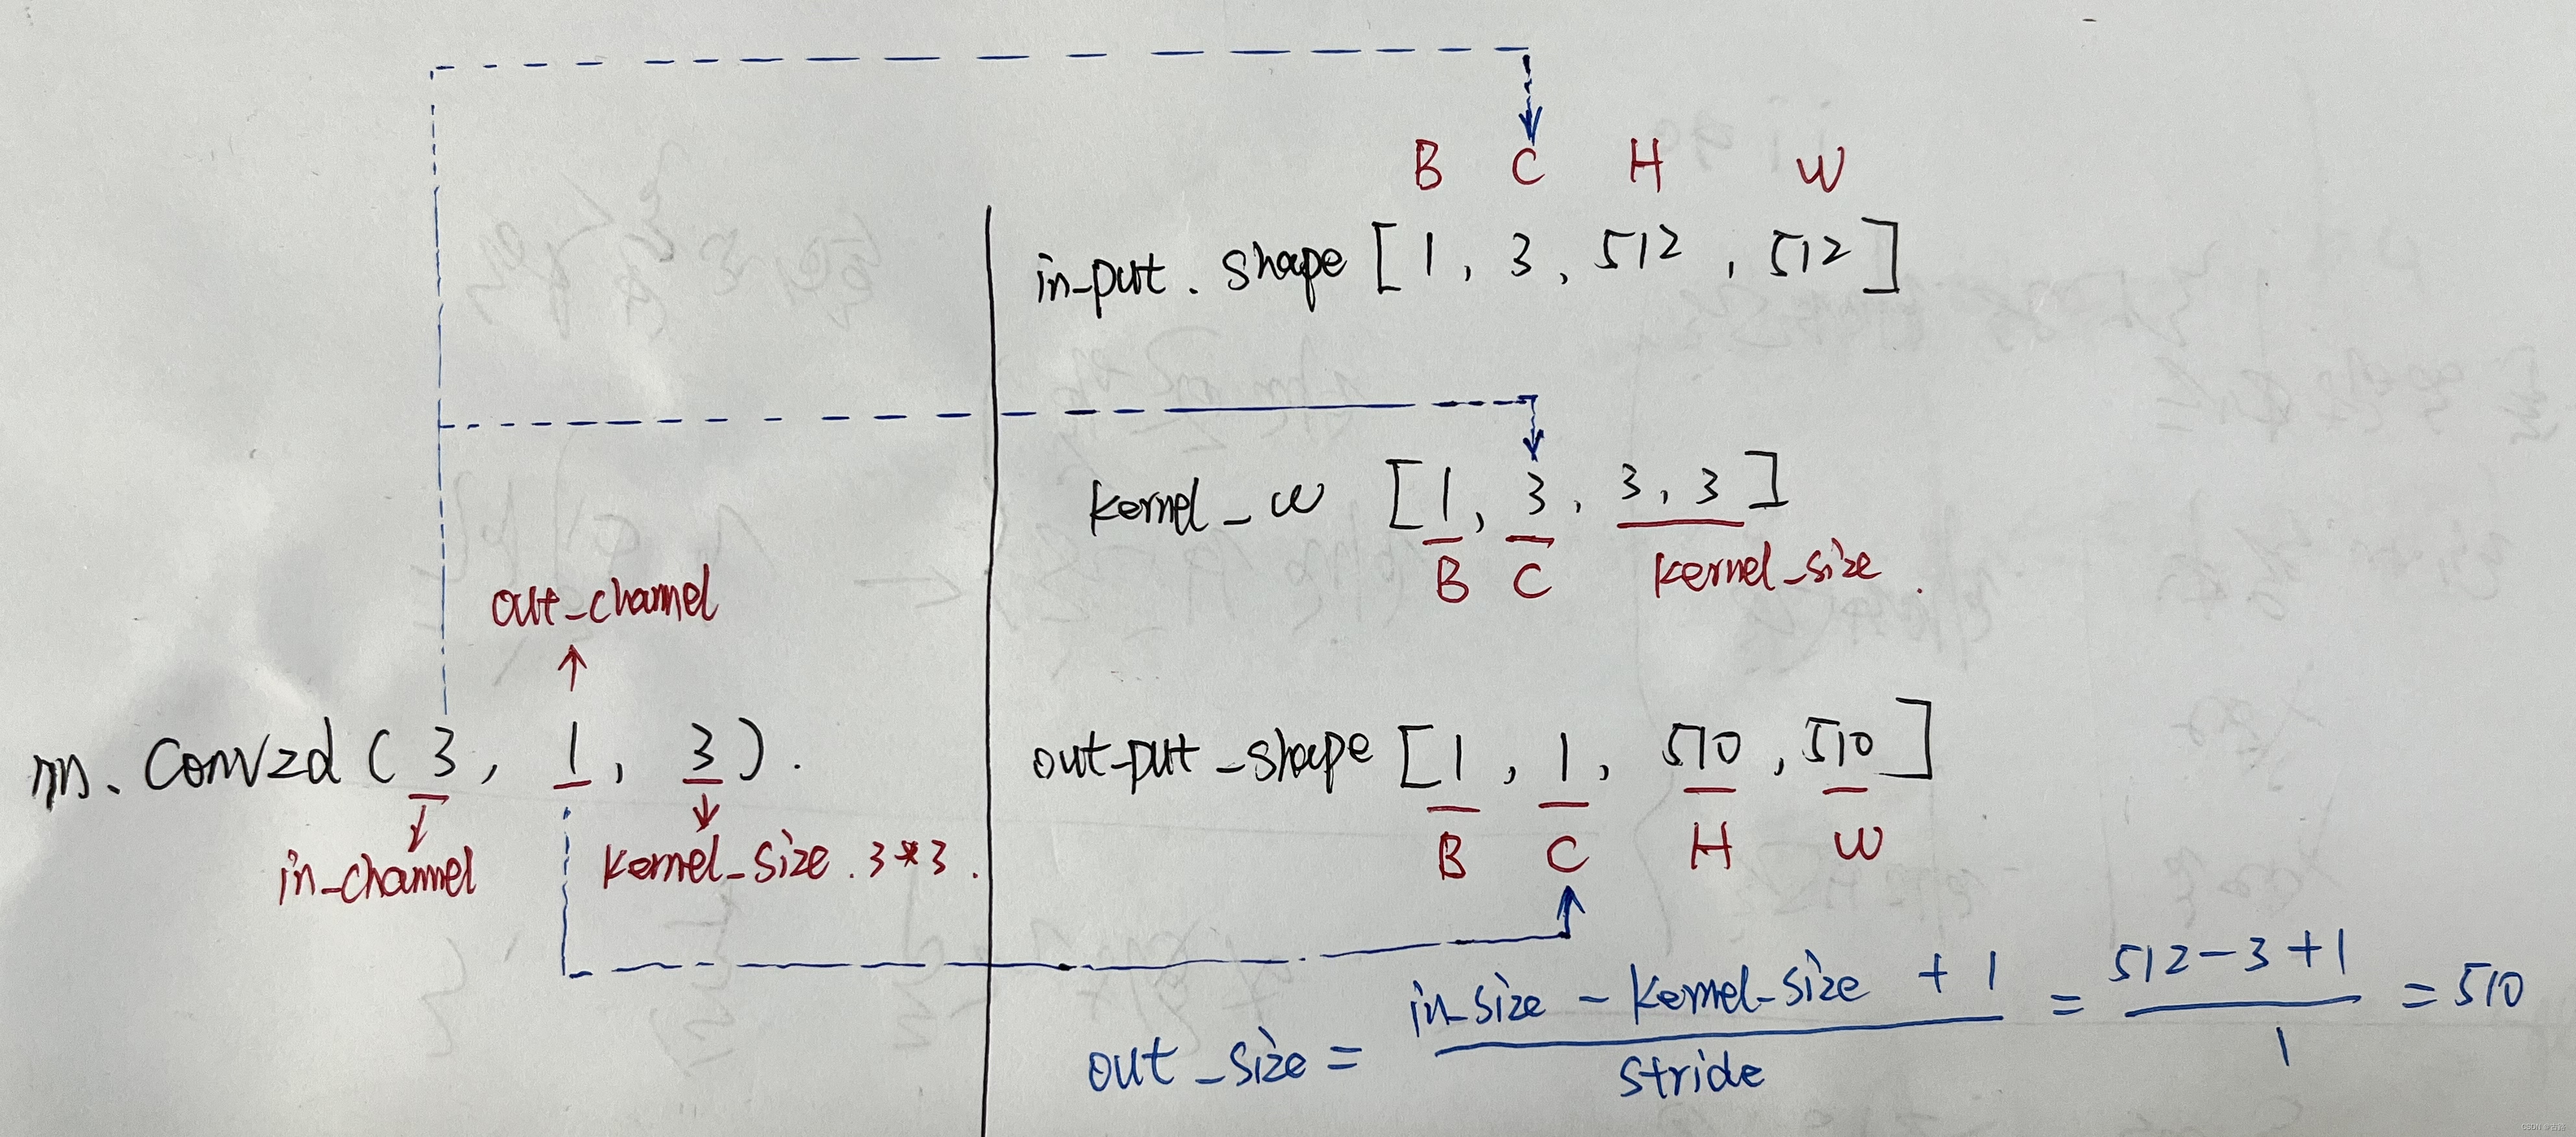 B C H W
in_put . shape [ 1 , 3 , 512 , 512 ]
kernel_w [ 1 , 3 , 3 , 3 ]
B C kernel_size .
out_channel
↑
nn. Conv2d ( 3 , 1 , 3 ) .
in_channel
kernel_size . 3*3 .
out-put_shape [ 1 , 1 , 510 , 510 ]
B C H W
out_size = in_size - kernel_size + 1 / stride = 512 - 3 + 1 / 1 = 510